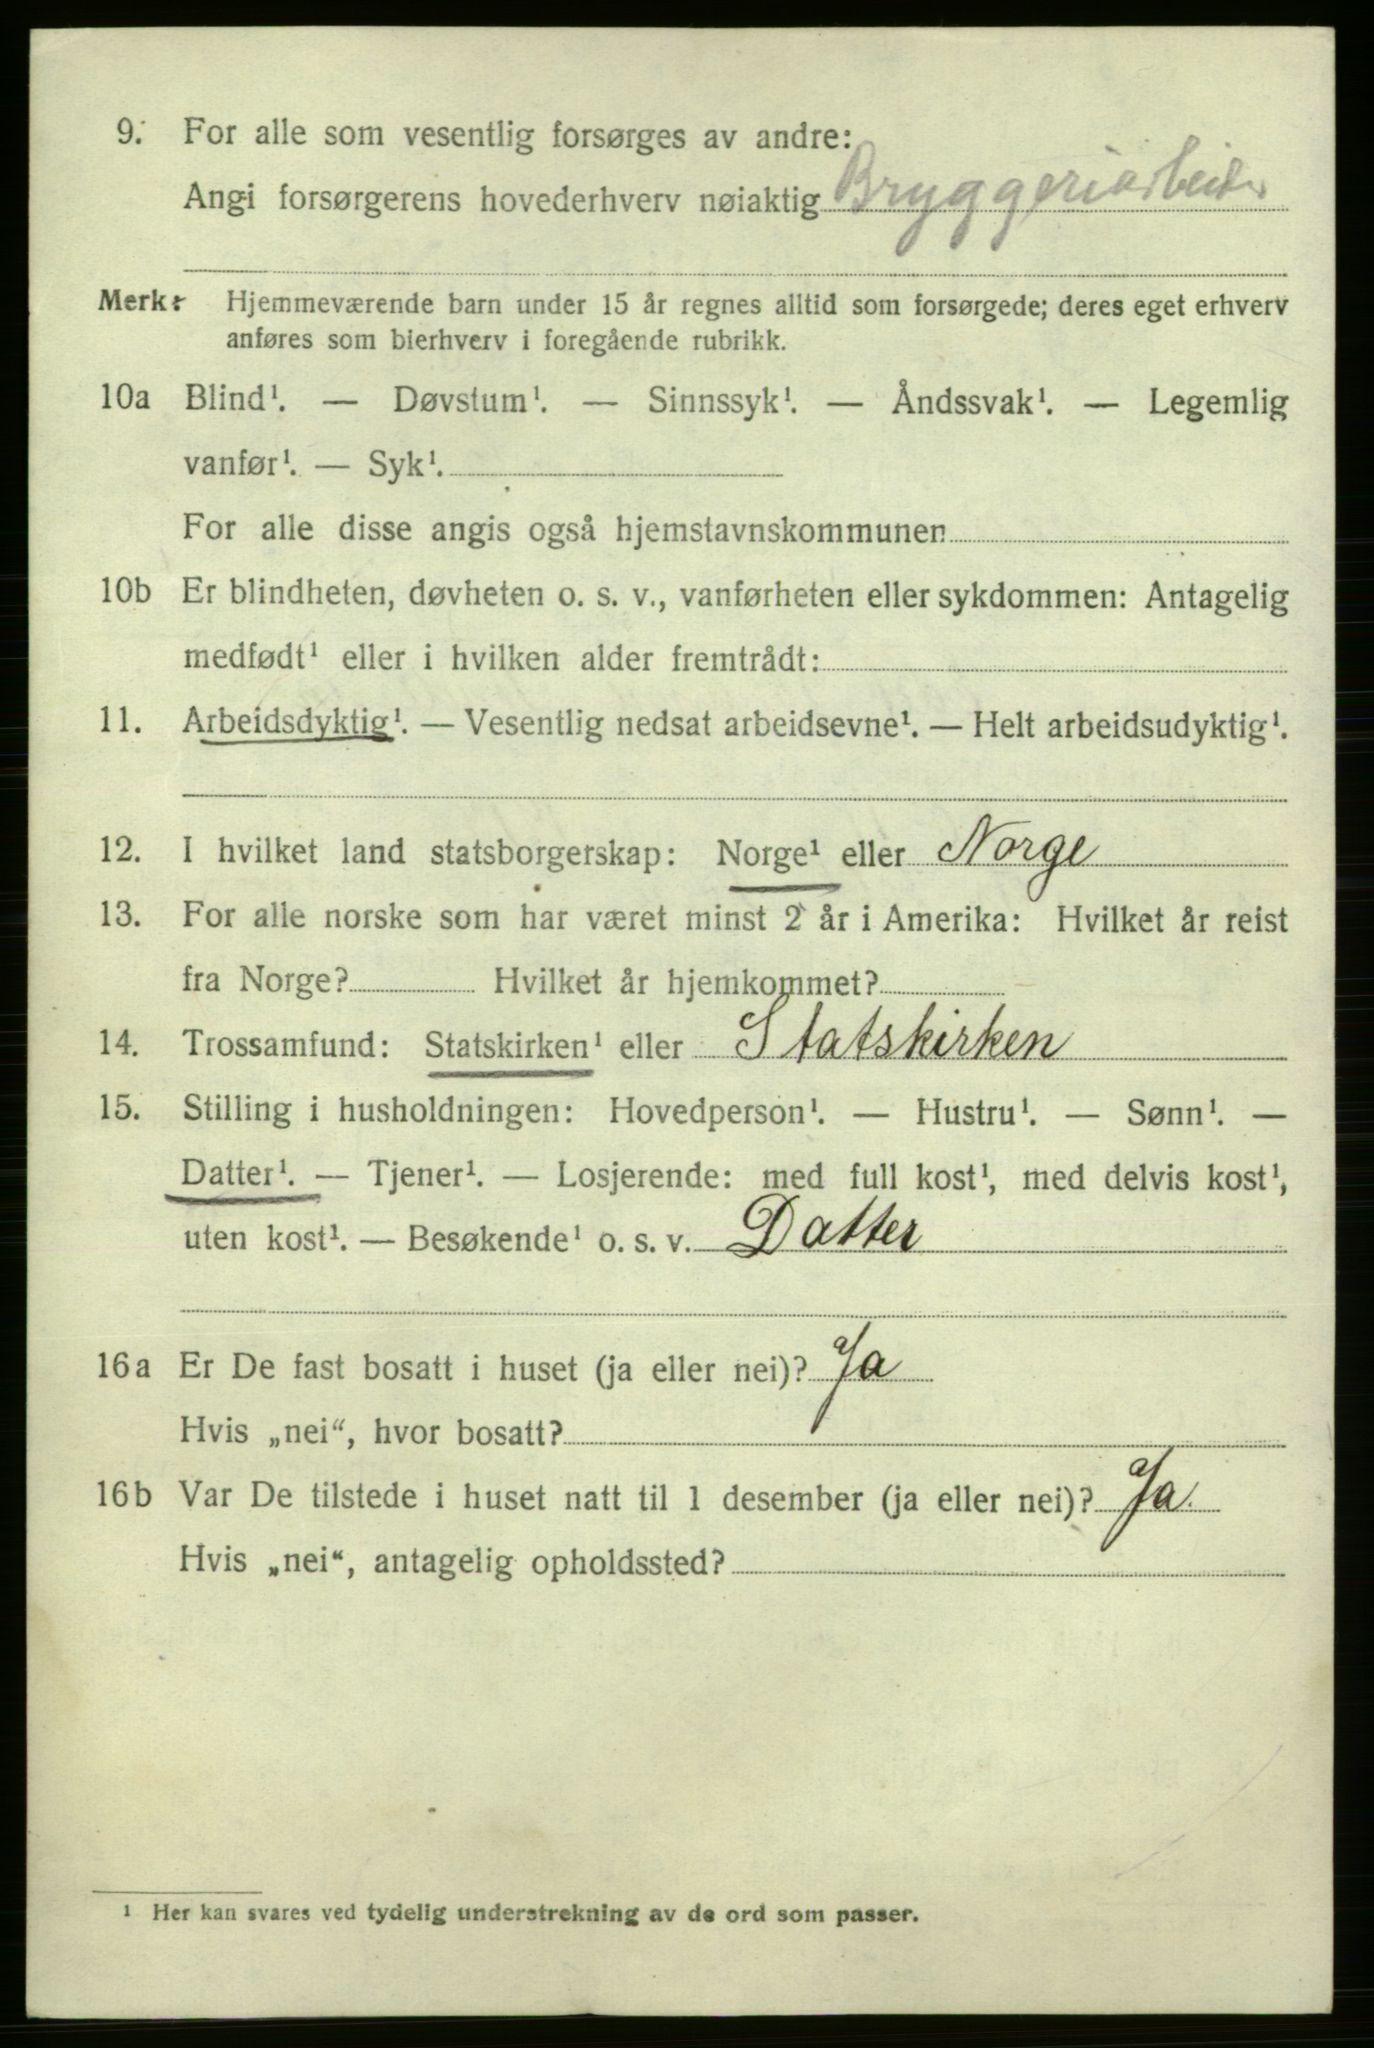 9. For alle som vesentlig forsørges av andre:
Angi forsørgerens hovederhverv nøiaktig Bryggeriarbeider
Merk: Hjemmeværende barn under 15 år regnes alltid som forsørgede; deres eget erhverv
anføres som bierhverv i foregående rubrikk.
10a Blind¹. — Døvstum¹. — Sinnssyk¹. — Åndssvak¹. — Legemlig
vanfør¹. — Syk¹.
For alle disse angis også hjemstavnskommunen
10b Er blindheten, døvheten o. s. v., vanførheten eller sykdommen: Antagelig
medfødt¹ eller i hvilken alder fremtrådt:
11. Arbeidsdyktig¹. — Vesentlig nedsat arbeidsevne¹. — Helt arbeidsudyktig¹.
12. I hvilket land statsborgerskap: Norge¹ eller Norge
13. For alle norske som har været minst 2 år i Amerika: Hvilket år reist
fra Norge? Hvilket år hjemkommet?
14. Trossamfund: Statskirken¹ eller Statskirken
15. Stilling i husholdningen: Hovedperson¹. — Hustru¹. — Sønn¹. —
Datter¹. — Tjener¹. — Losjerende: med full kost¹, med delvis kost¹,
uten kost¹. — Besøkende¹ o. s. v. Datter
16a Er De fast bosatt i huset (ja eller nei)? Ja
Hvis „nei“, hvor bosatt?
16b Var De tilstede i huset natt til 1 desember (ja eller nei)? Ja.
Hvis „nei“, antagelig opholdssted?
¹ Her kan svares ved tydelig understrekning av de ord som passer.